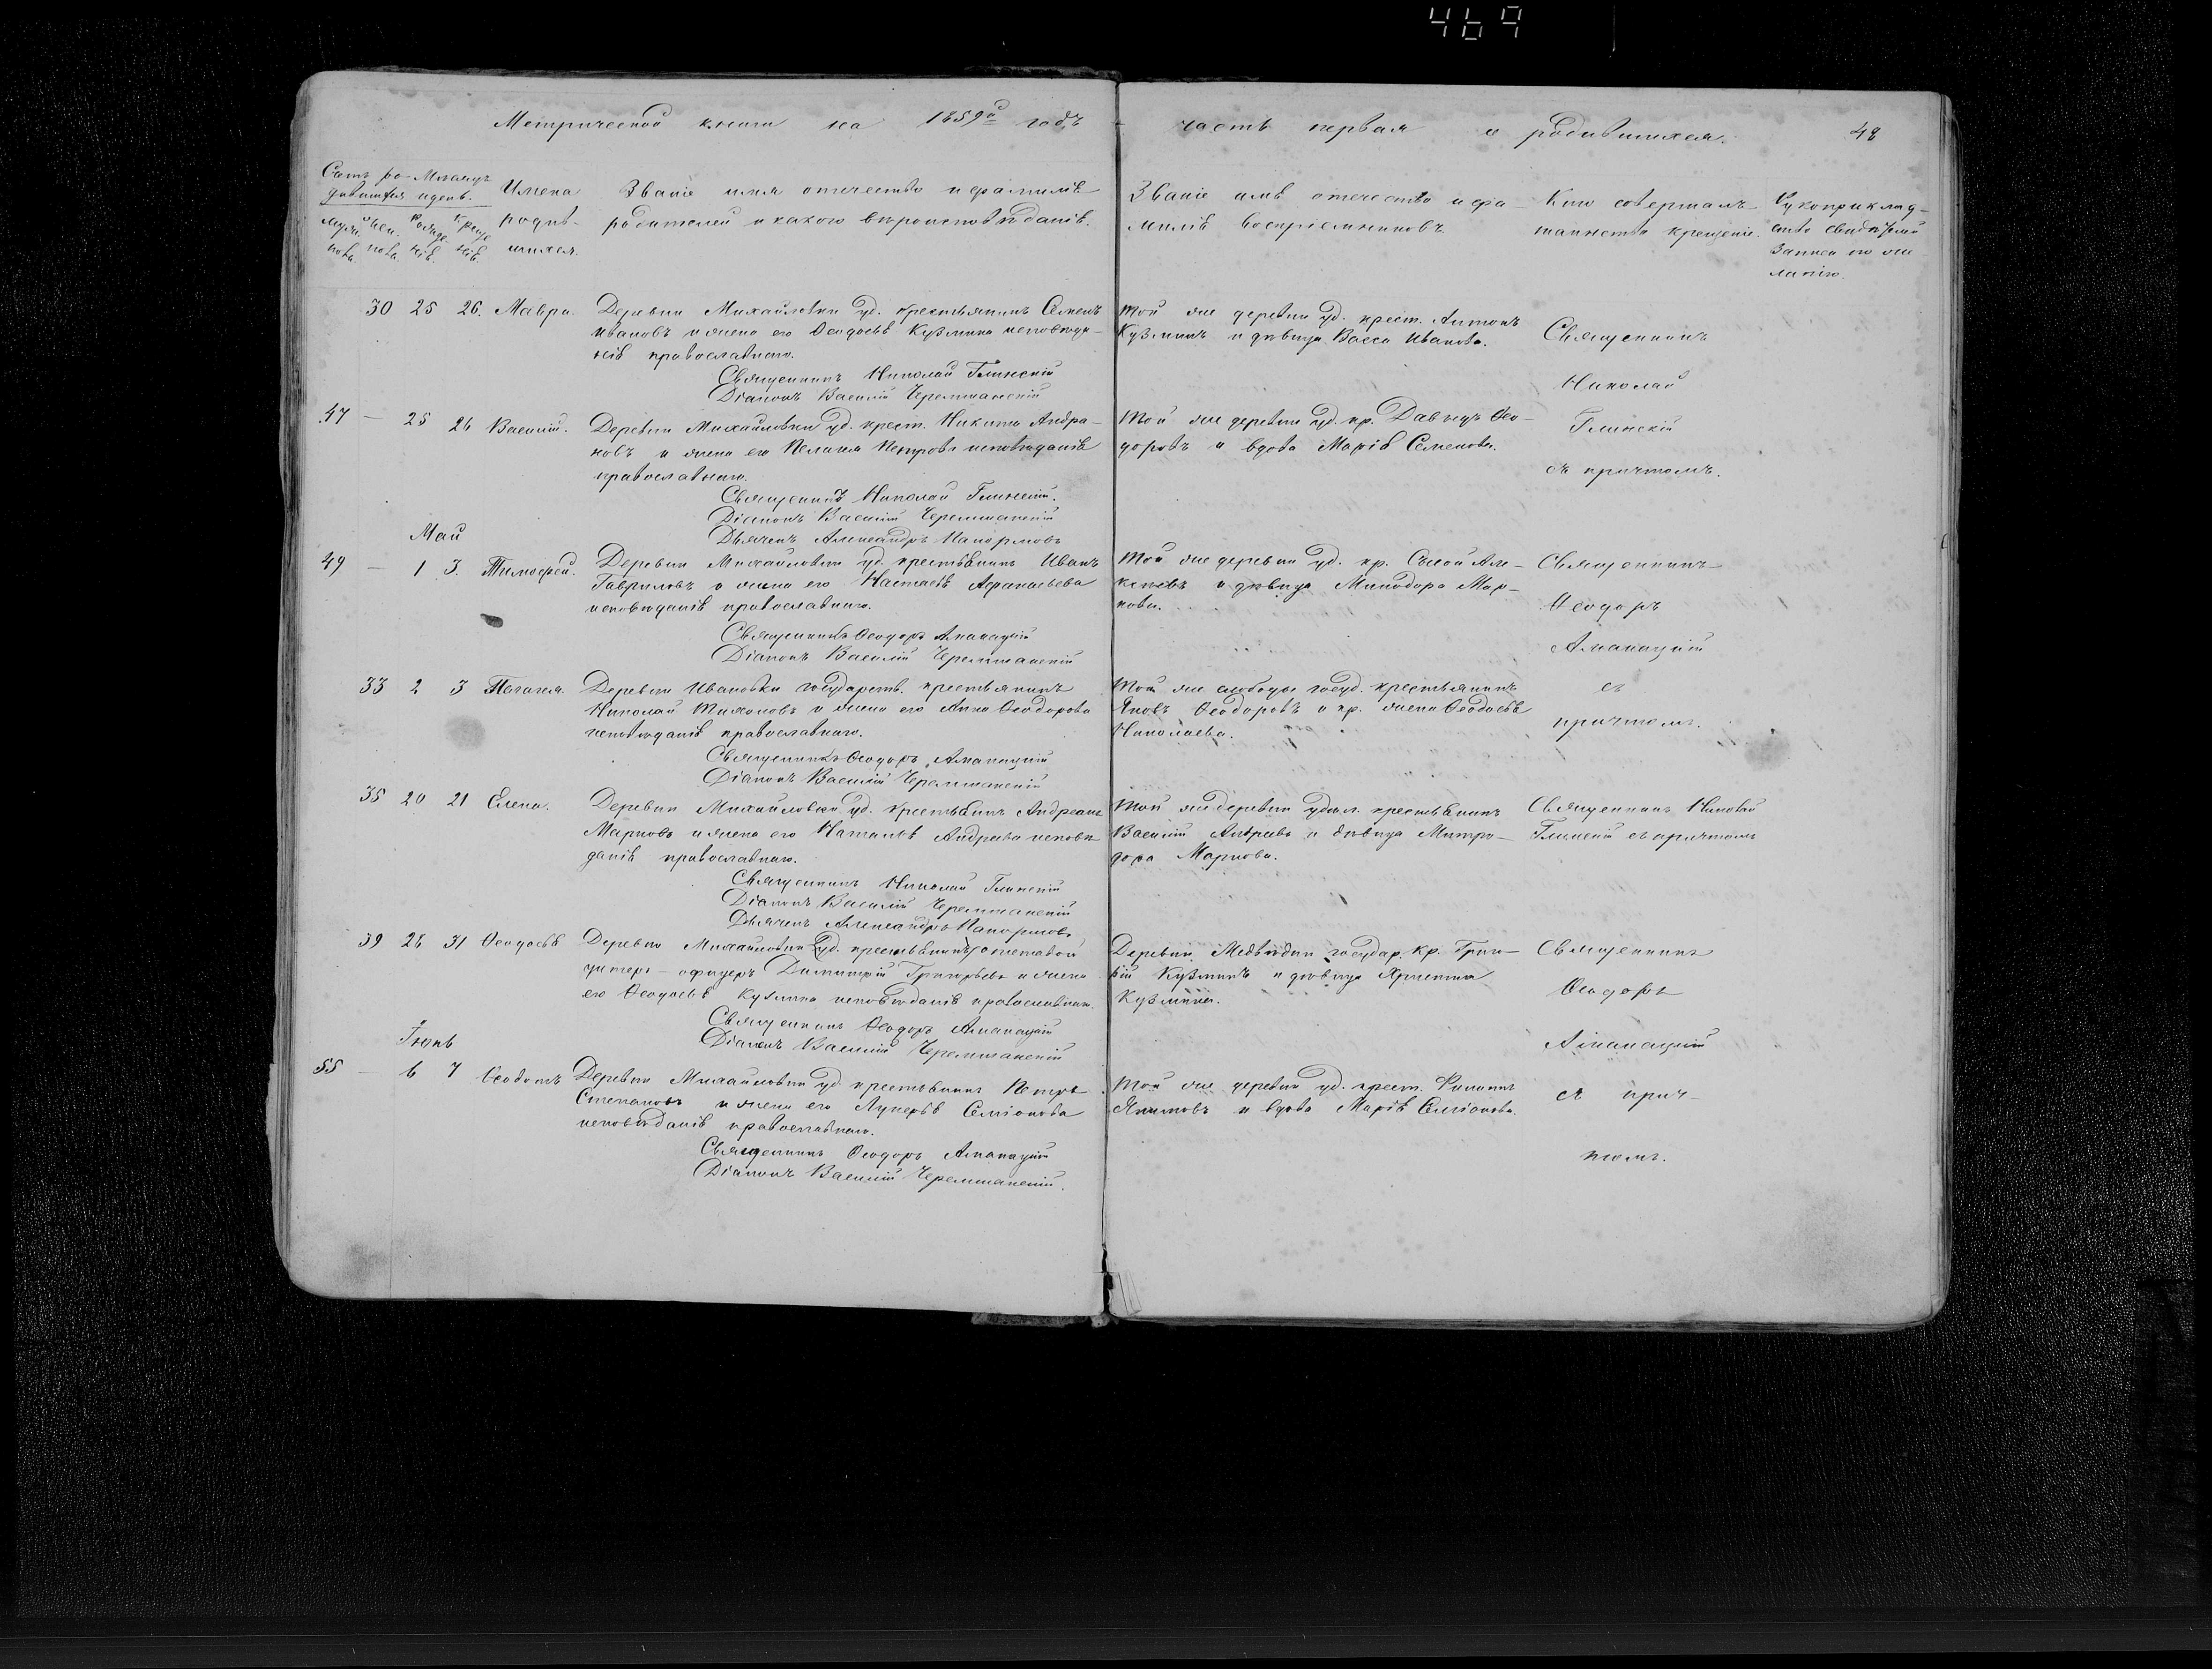 469
Метрической книги на 1859й годъ
часть первая о родившихся.
48
Счетъ ро-
дившихся
Мѣсяцъ
и день.
муж. жен. рожде- креще-
нова. нова. нія. нія.
Имена
родив-
шихся.
Званіе имя отечество и фамилія
родителей и какого вѣроисповѣданія.
Званіе имя отечество и фа-
милія воспріемниковъ.
Кто совершалъ
таинство крещенія.
Рукоприклад-
ство свидѣтелей
записи по же-
ланію.
30 25 26. Мавра.
Деревни Михайловки уд. крестьянинъ Семенъ
Ивановъ и жена его Ѳеодосья Кузмина исповѣда-
нія православнаго.
Священникъ Николай Глинскій
Діаконъ Василій Черемшанскій
Той же деревни уд. крест. Антонъ
Кузминъ и дѣвица Васса Иванова.
Священникъ
Николай
Глинскій
съ причтомъ.
47 — 25 26 Василій.
Деревни Михайловки уд. крест. Никита Андра-
новъ и жена его Пелагія Петрова исповѣданія
православнаго.
Священникъ Николай Глинскій.
Діаконъ Василій Черемшанскій
Дьячекъ Александръ Панормовъ
Той же деревни уд. кр. Давыдъ Ѳео-
доровъ и вдова Марія Семенова.
Май
49 — 1 3. Тимофей.
Деревни Михайловки уд. крестьянинъ Иванъ
Гавриловъ и жена его Настасья Афанасьева
исповѣданія православнаго.
Священникъ Ѳеодоръ Аманацкій
Діаконъ Василій Черемшанскій
Той же деревни уд. кр. Сысой Але-
ксѣевъ и дѣвица Минодора Мар-
кова.
Священникъ
Ѳеодоръ
Аманацкій
съ
причтомъ.
33 2 3 Пелагея.
Деревни Ивановки государств. крестьянинъ
Николай Тихоновъ и жена его Анна Ѳеодорова
исповѣданія православнаго.
Священникъ Ѳеодоръ Аманацкій
Діаконъ Василій Черемшанскій
Той же слободы госуд. крестьянинъ
Яковъ Ѳеодоровъ и кр. жена Ѳеодосья
Николаева.
35 20 21 Елена.
Деревни Михайловки уд. крестьянинъ Андреянъ
Марковъ и жена его Наталья Андреева исповѣ-
данія православнаго.
Священникъ Николай Глинскій
Діаконъ Василій Черемшанскій
Дьячекъ Александръ Панормовъ
Той же деревни удѣл. крестьянинъ
Василій Андреевъ и дѣвица Митро-
дора Маркова.
Священникъ Николай
Глинскій съ причтомъ
39 28 31 Ѳеодосья
Деревни Михайловки (уд. крестьянинъ) отставной
унтеръ-офицеръ Димитрій Григорьевъ и жена
его Ѳеодосья Кузмина исповѣданія православнаго.
Священникъ Ѳеодоръ Аманацкій
Діаконъ Василій Черемшанскій
Деревни Медвѣдки государ. кр. Григо-
рій Кузминъ и дѣвица Христина
Кузмина.
Священникъ
Ѳеодоръ
Аманацкій
съ прич-
томъ.
Іюнь
55 — 6 7 Ѳеодотъ
Деревни Михайловки уд. крестьянинъ Петръ
Степановъ и жена его Лукерья Семіонова
исповѣданія православнаго.
Священникъ Ѳеодоръ Аманацкій
Діаконъ Василій Черемшанскій.
Той же деревни уд. крест. Филиппъ
Якимовъ и вдова Марія Семіонова.